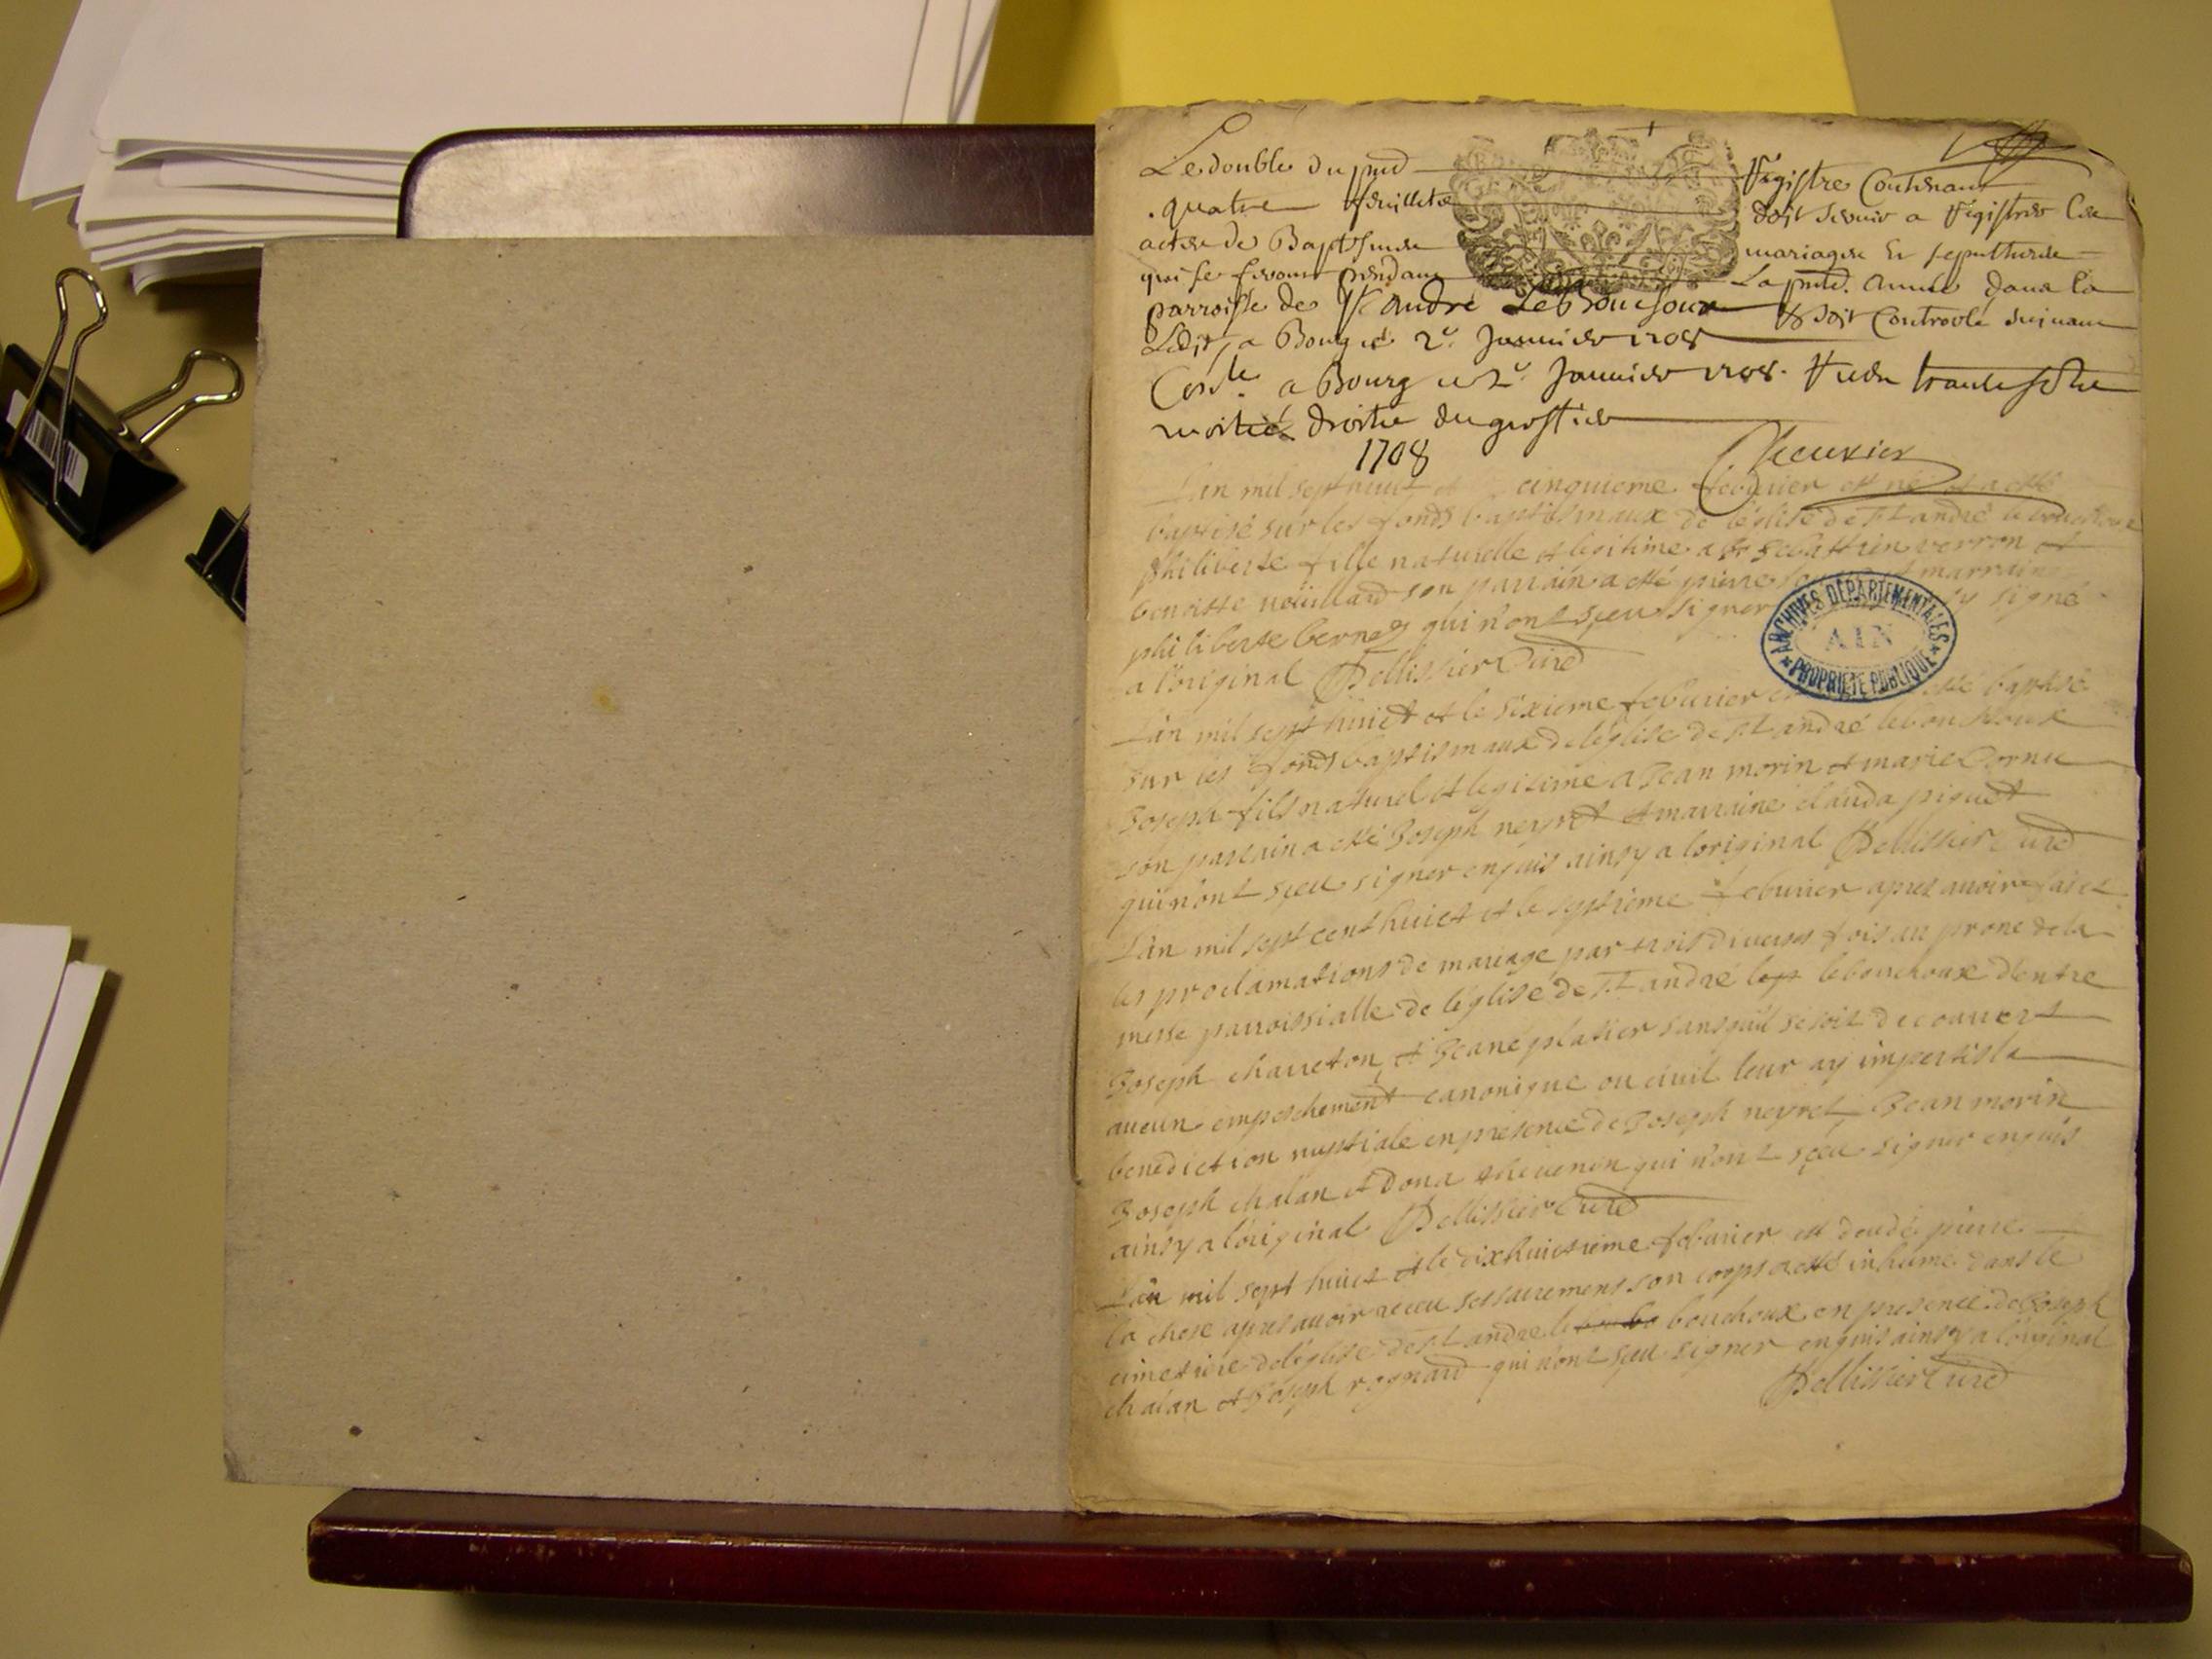 Le double du pnt Registre Contenant
quatre feuillets doit servir a Registrer les
actes de Baptesmes mariages Et sepultures
qui se feront pendant La pnte. année dans la
parroisse de St André Le Bouchoux Et soit Controolé suivant
Ledit, a Bourg ce 2e. Janvier 1708
Conlé. a Bourg ce 2e. Janvier 1708. Reçu trente sols
moitié droitte du greffier
1708
L'an mil sept huict et cinquieme febvrier est né et a esté
baptisé sur les fonds baptismaux de l'eglise de St andré le bouchoux
philiberte fille naturelle et legitime a Sebastien verron et
benoitte son parrain a esté pierre et marraine
philiberte bernet qui n'ont sçeu signer signé
a l'original Pellissier Curé
ARCHIVES DÉPARTEMENTALES
AIN
PROPRIÉTÉ PUBLIQUE
L'an mil sept huict et le sixieme febvrier esté baptisé
sur les fonds baptismaux de l'eglise de St andré le bouchoux
Joseph fils naturel et legitime a Jean morin et marie Cornu
son parrain a esté Joseph neyret et marraine clauda piquet
qui n'ont sçeu signer enquis ainsy a loriginal Pellissier Curé
L'an mil sept cent huict et le septieme febvrier apres avoir faict
les proclamations de mariage par trois diverses fois au prone de la
messe parroissialle de l'eglise de St andré le bouchoux d'entre
Joseph charreton et Jeane platier sans qu'il se soit decouvert
aucun empeschement canonique ou civil leur ay imparti la
benediction nuptiale en presence de Joseph neyret, Jean morin
Joseph chalan et Dona thevenon qui n'ont sçeu signer enquis
ainsy a l'original Pellissier Curé
L'an mil sept huict et le dixhuictieme febvrier est decedé pierre
la chose apres avoir receu ses sacremens son corps a esté inhumé dans le
cimetiere de l'eglise de St andre le bouchoux en presence de Joseph
chalan et Joseph regnard qui n'ont sçeu signer enquis ainsy a l'original
Pellissier Curé